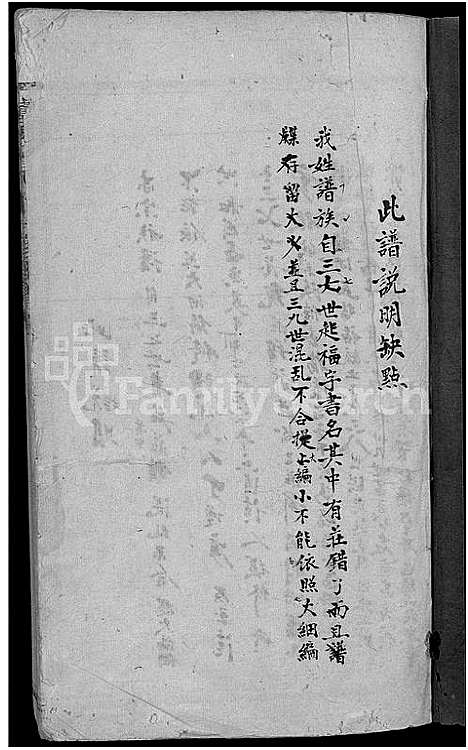 此譜説明缺點
我姓譜族自三七世起福字書名其中有莊錯了而且譜
牒存留大火並且三九世混乱不合從上編小不能依照大細編
FamilySearch